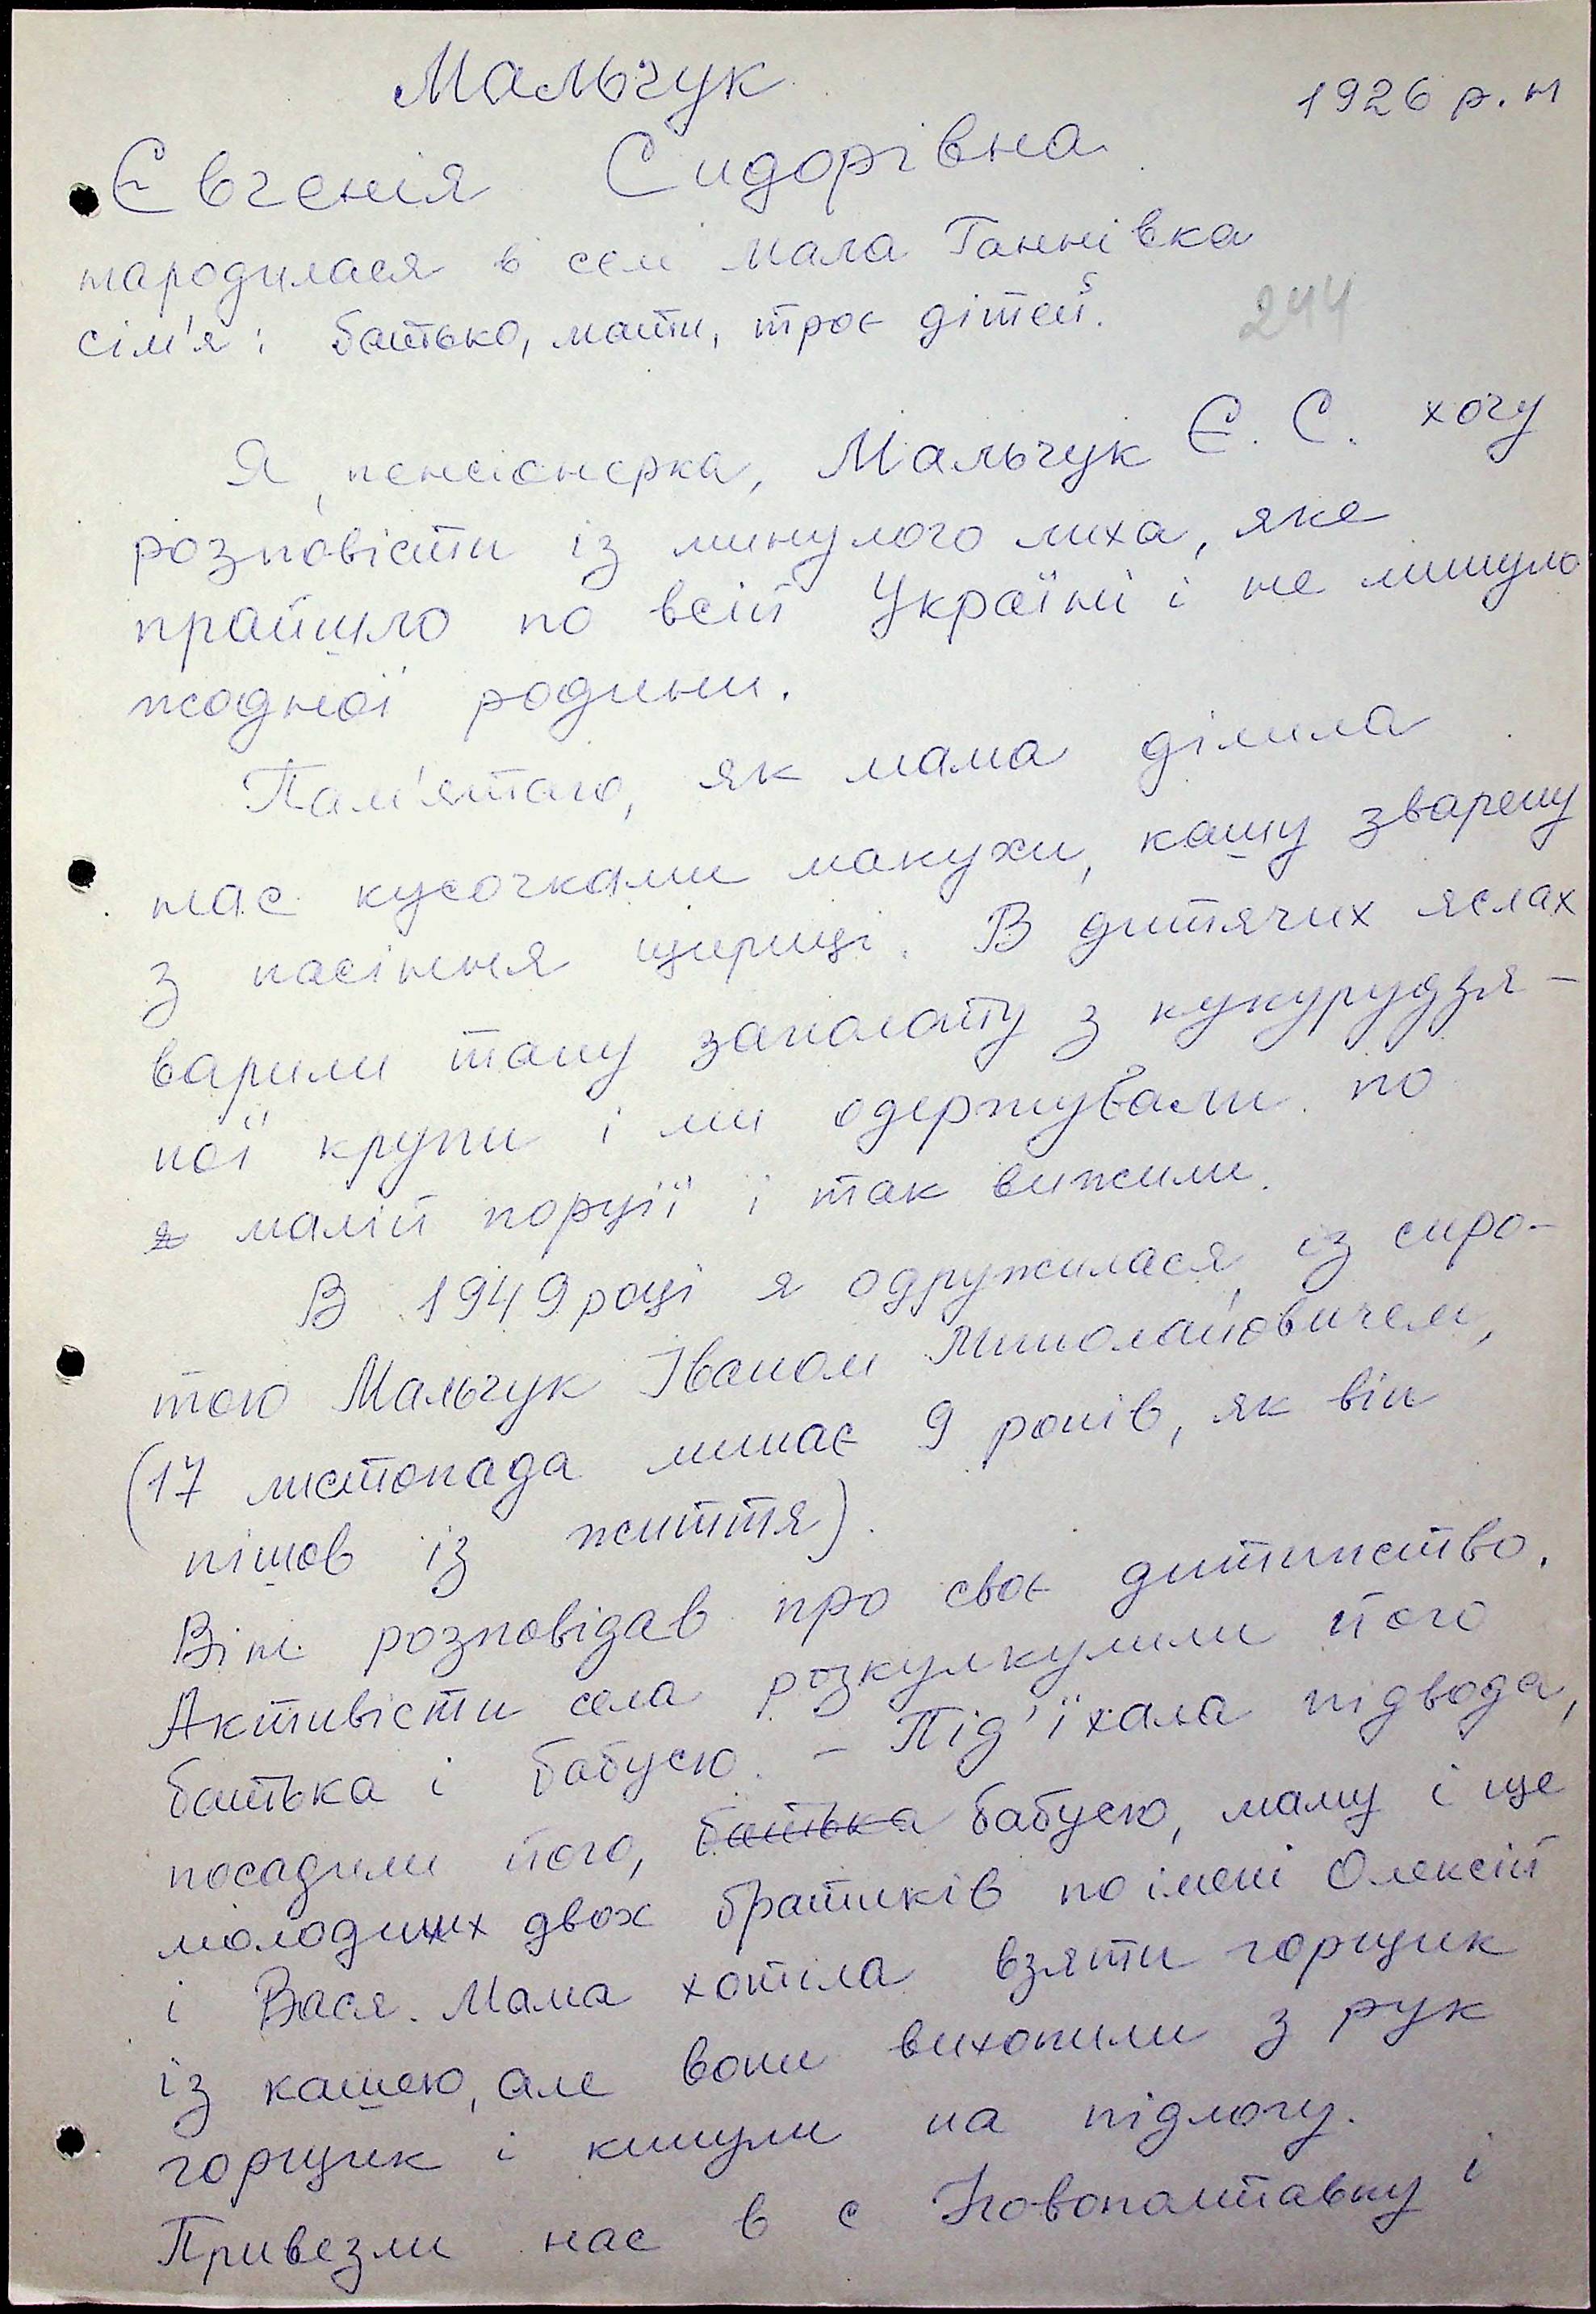 Мальчук
1926 р. н
Євгенія Сидорівна
народилася в селі Мала Ганнівка
сім'я: батько, мати, троє дітей.
244
Я, пенсіонерка, Мальчук Є. С. хочу
розповісти із минулого лиха, яке
пройшло по всій Україні і не минуло
жодної родини.
Пам'ятаю, як мама ділила
нас кусочками макухи, кашу зварену
з насіння щириці. В дитячих яслах
варили таку заколоту з кукурудзя-
ної крупи і ми одержували по
малій порції і так вижили.
В 1949 році я одружилася із сиро-
тою Мальчук Іваном Миколайовичем,
(17 листопада минає 9 років, як він
пішов із життя).
Він розповідав про своє дитинство.
Активісти села розкулкулили його
батька і бабусю. - Під'їхала підвода,
посадили його, батька бабусю, маму і ще
молодших двох братиків по імені Олексій
і Вася. Мама хотіла взяти горщик
із кашею, але вони вихопили з рук
горщик і кинули на підлогу.
Привезли нас в с Новополтавку і